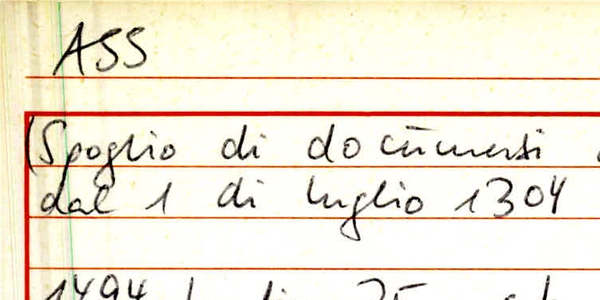 ASS
(Spoglio di documenti
dal 1 di luglio 1304
1494 luglio 25